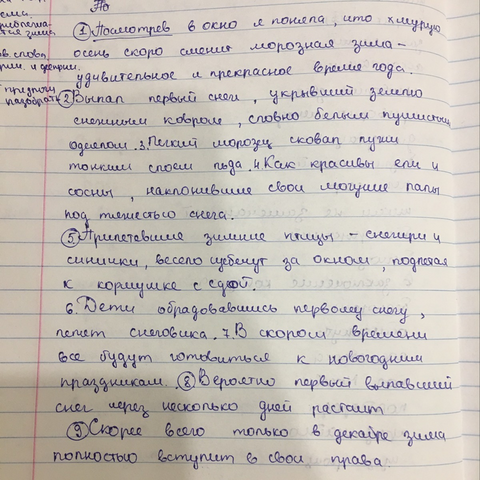 1 Посмотрев в окно я поняла, что хмурую
осень скоро сменит морозная зима-
удивительное и прекрасное время года.
2 Выпал первый снег, укрывший землю
снежным ковром, словно белым пушистым
одеялом. 3. Легкий морозец сковал лужи
тонким слоем льда. 4. Как красивы ели и
сосны, наклонившие свои могучие лапы
под тяжестью снега.
5 Прилетевшие зимние птицы - снегири и
синички, весело щебечут за окном, подлетая
к кормушке с едой.
6. Дети обрадовавшись первому снегу,
лепят снеговика. 7. В скором времени
все будут готовиться к новогодним
праздникам. 8 Вероятно первый выпавший
снег через несколько дней растает
9 Скорее всего только в декабре зима
полностью вступит в свои права